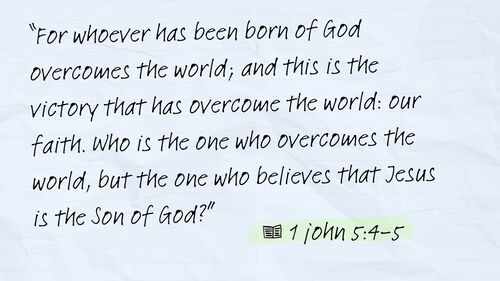 "For whoever has been born of God
overcomes the world; and this is the
victory that has overcome the world: our
faith. Who is the one who overcomes the
world, but the one who believes that Jesus
is the Son of God?"
1 john 5:4-5